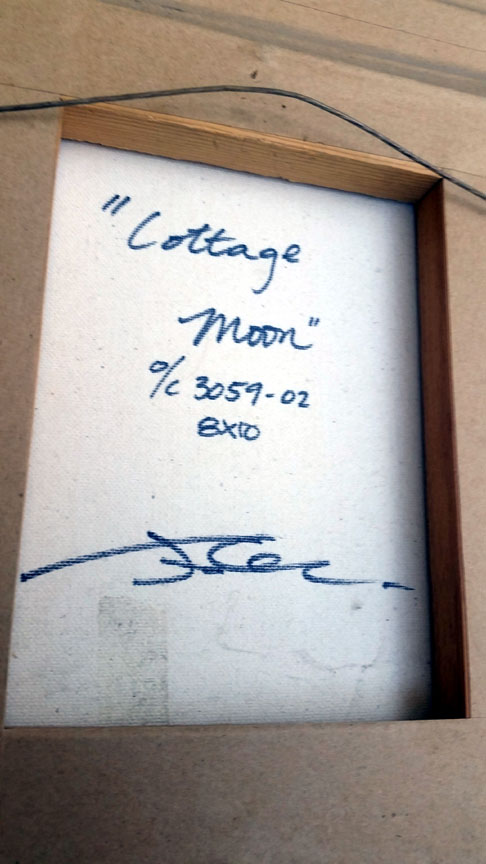 "Cottage
Moon"
o/c 3059-02
8X10